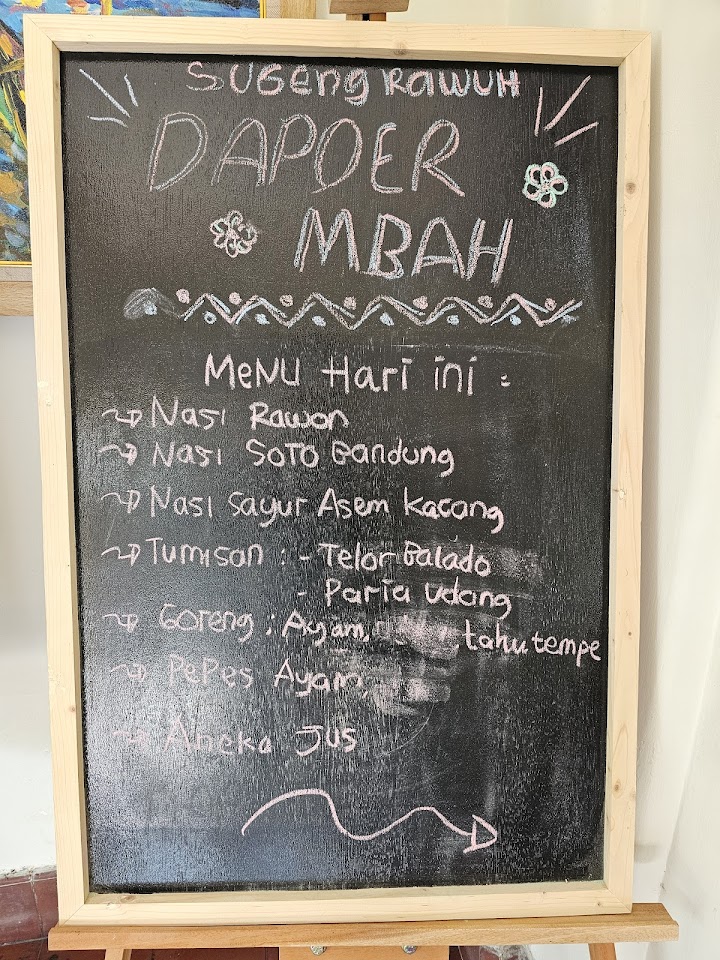 SUGeng RAWUH
DAPOER
MBAH
MeNU Hari ini :
Nasi Rawon
Nasi SOTO Bandung
Nasi Sayur Asem Kacang
Tumisan : - Telor Balado
- Paria udang
GOreng : Ayam, tahu tempe
PePes Ayam,
Aneka JUS